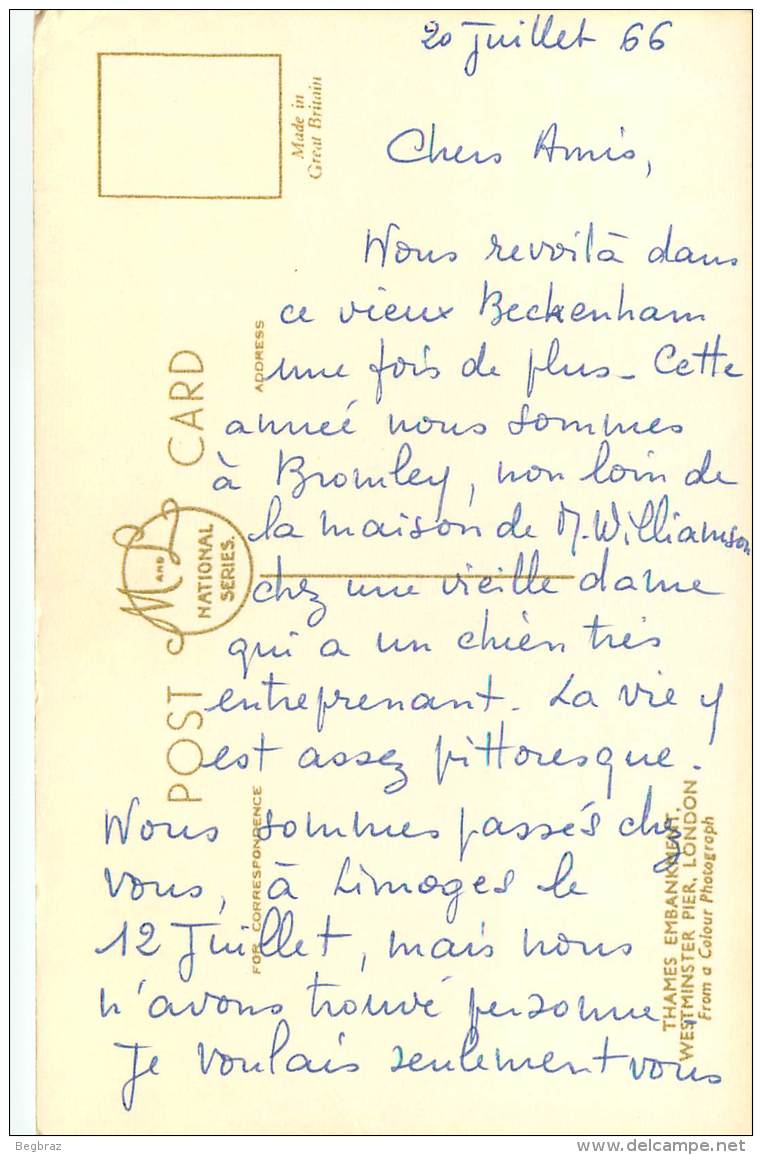 20 Juillet 66
Chers Amis,
Nous revoilà dans
ce vieux Beckenham
une fois de plus - Cette
année nous sommes
à Bromley, non loin de
la maison de M. Williamson
chez une vieille dame
qui a un chien très
entreprenant. La vie y
est assez pittoresque.
Nous sommes passés chez
vous, à Limoges le
12 Juillet, mais nous
n'avons trouvé personne,
Je voulais seulement vous
Made in
Great Britain
POST CARD
M AND L
NATIONAL
SERIES.
ADDRESS
FOR CORRESPONDENCE
THAMES EMBANKMENT,
WESTMINSTER PIER, LONDON
From a Colour Photograph
Begbraz
delcampe.net